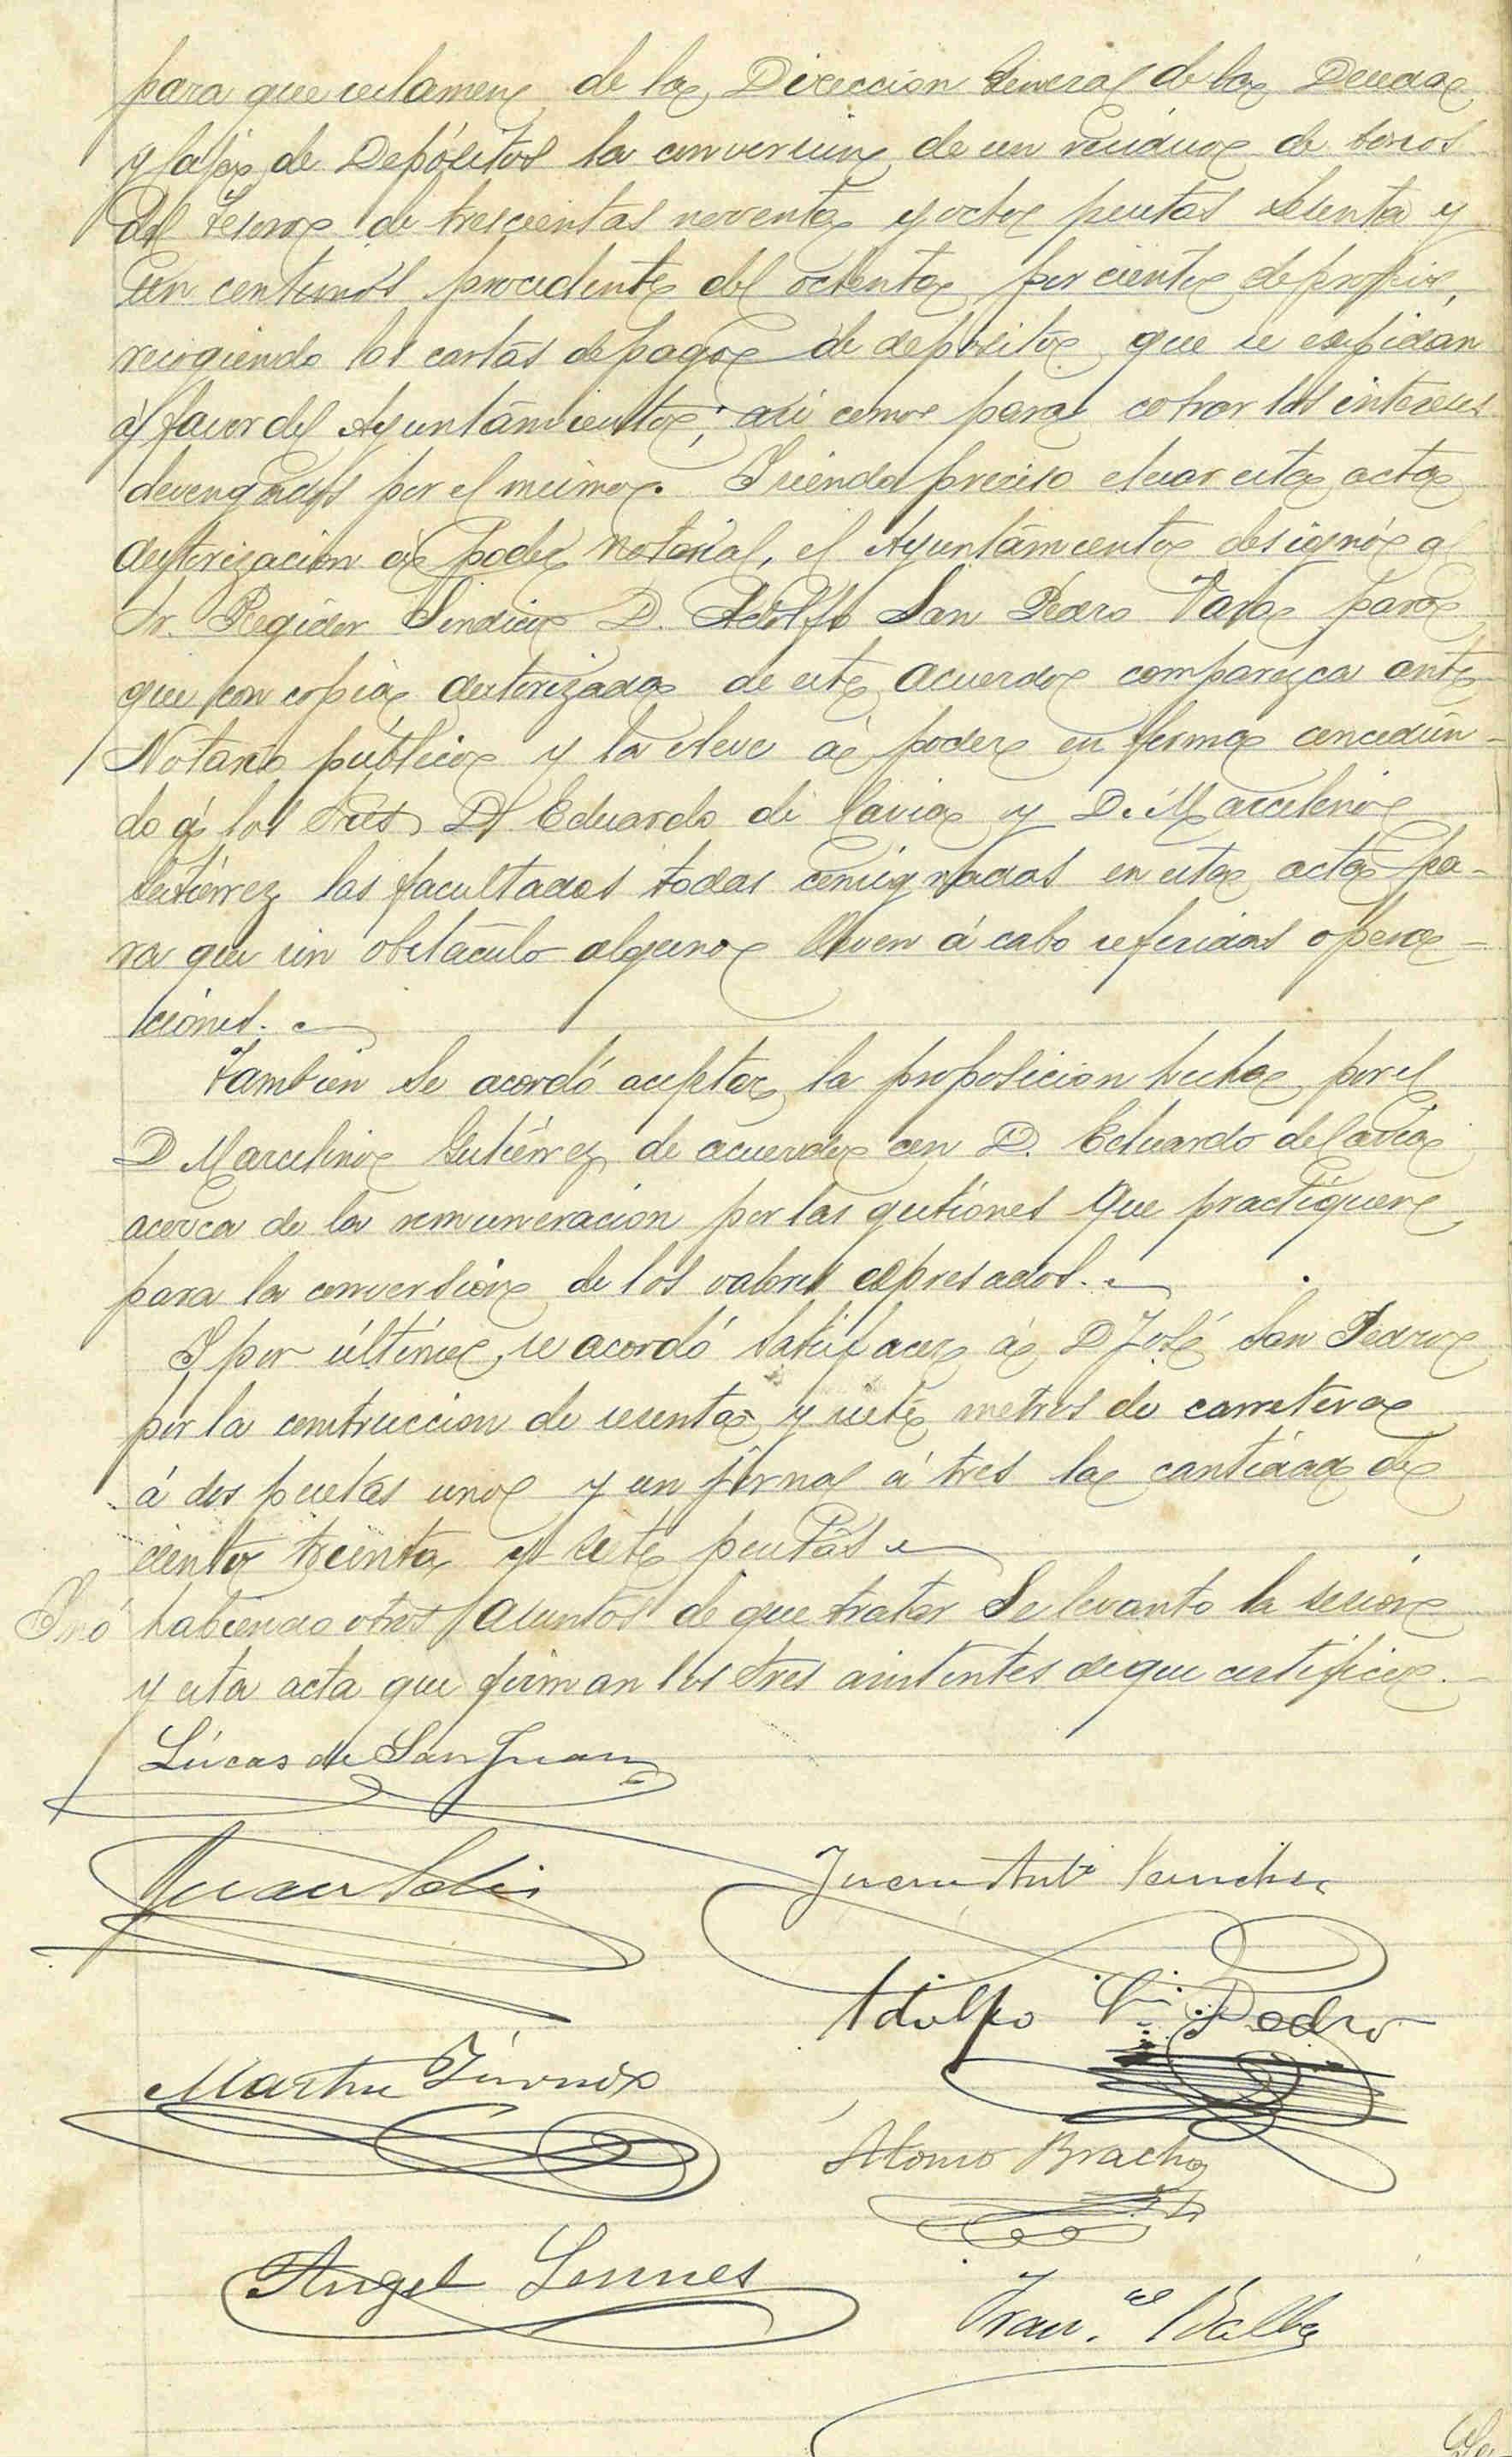 para que reclamen de la Direccion General de la Deuda
y Caja de Depósitos la conversion de un residuo de bonos
del Tesoro de trescientas noventa y ocho pesetas sesenta y
un centimos procedente del ochenta por ciento de propios,
recogiendo las cartas de pago de depósito que se expidan
á favor del Ayuntamiento; asi como para cobrar los intereses
devengados por el mismo. Y siendo preciso elevar esta acta
autorizacion á poder notarial, el Ayuntamiento designó al
Sr. Regidor Sindico D. Adolfo San Pedro para
que con copia autorizada de este acuerdo comparezca ante
Notario público y la eleve á poder en forma concedien-
do á los Sres D. Eduardo de Cavia y D. Marcelino
Gutiérrez las facultades todas consignadas en esta acta pa-
ra que sin obstáculo alguno lleven á cabo referidas opera-
ciones.
Tambien se acordó aceptar la proposicion hecha por el
D Marcelino Gutiérrez de acuerdo con D. Eduardo de Cavia
acerca de la remuneracion por las gestiones que practiquen
para la conversion de los valores espresados.
Y por último, se acordó satisfacer á D José San Pedro
por la construccion de sesenta y siete metros de carretera
á dos pesetas uno y un jornal á tres la cantidad de
ciento treinta y siete pesetas
Y no habiendo otros asuntos de que tratar se levanto la sesion
y esta acta que firman los Sres asistentes de que certifico.
Lúcas de San Juan
Juan Solis
Juan Ant.º Sanchez
Adolfo Sn. Pedro
Martin
Alonso Bracho
Angel
Fran.co